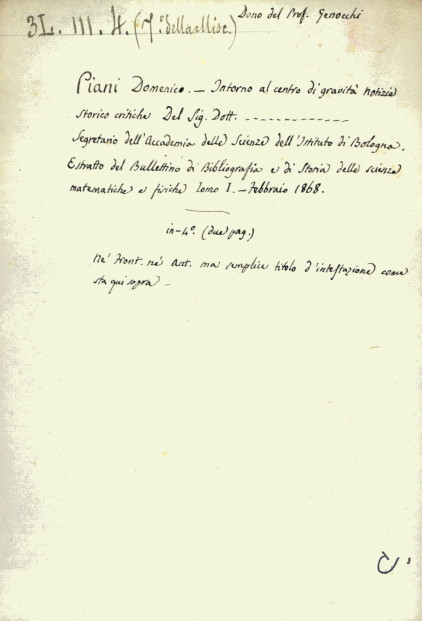 3L. III. 4. (7.º della Misc.)
Dono del Prof. Genocchi
Piani Domenico. — Intorno al centro di gravità notizie
storico critiche Del Sig. Dott. ------------
Segretario dell'Accademia delle Scienze dell'Istituto di Bologna.
Estratto del Bullettino di Bibliografia e di Storia delle scienze
matematiche e fisiche tomo I. — Febbraio 1868.
in-4.º (due pag.)
Nè Front. nè Ant. ma semplice titolo d'intestazione come
sta qui sopra —